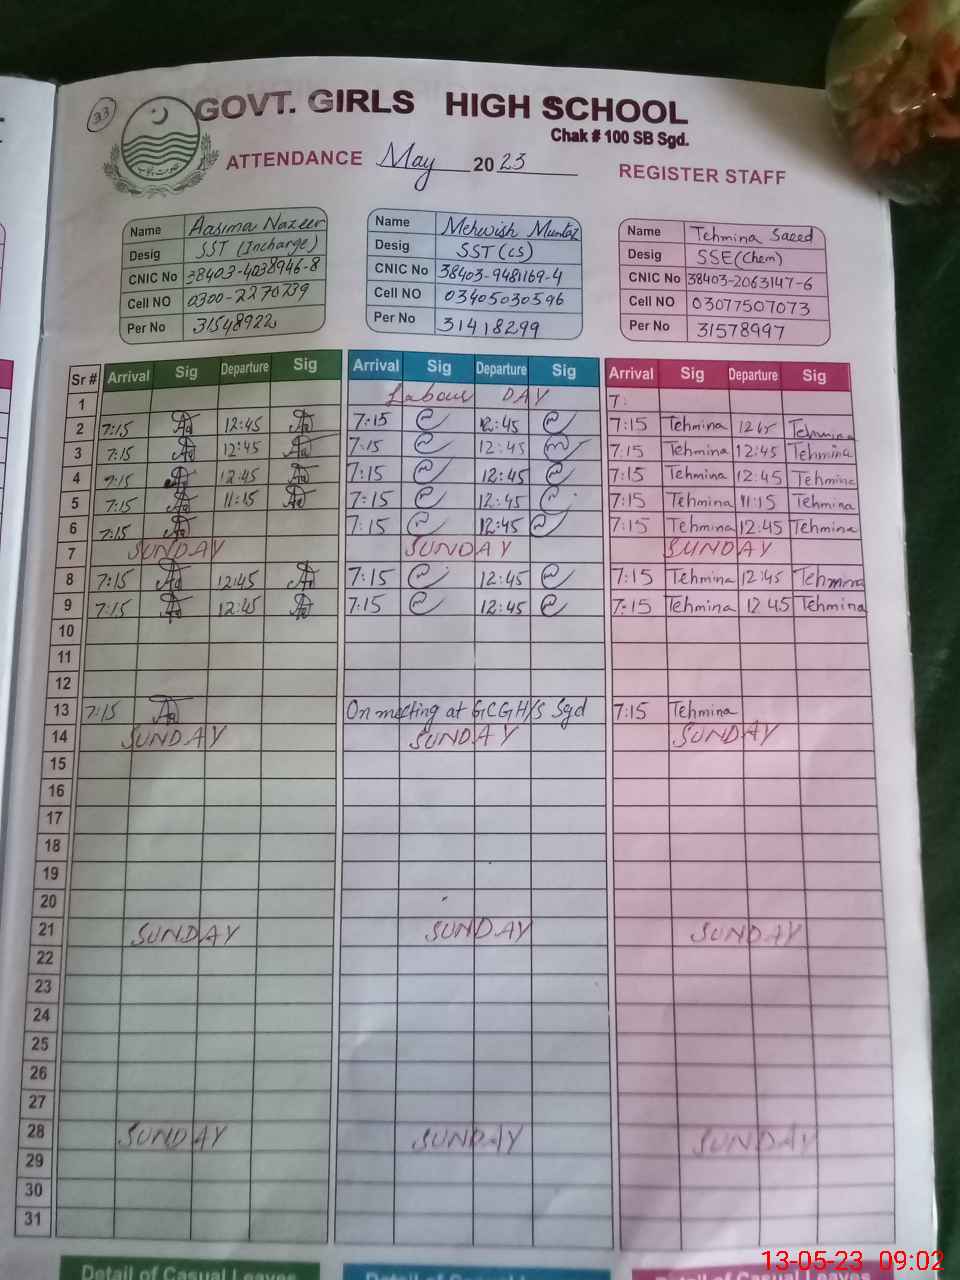 33
GOVT. GIRLS HIGH SCHOOL
Chak # 100 SB Sgd.
ATTENDANCE May 2023 REGISTER STAFF
Name Aasima Nazeer
Desig SST (Incharge)
CNIC No 38403-4038946-8
Cell NO 0300-2270739
Per No 31548922
Name Mehwish Mumtaz
Desig SST (CS)
CNIC No 38403-9481169-4
Cell NO 03405030596
Per No 31418299
Name Tehmina Saeed
Desig SSE (Chem)
CNIC No 38403-2063147-6
Cell NO 03077507073
Per No 31578997
Sr # Arrival Sig Departure Sig Arrival Sig Departure Sig Arrival Sig Departure Sig
1 Labour DAY 7:
2 7:15 12:45 7:15 12:45 7:15 Tehmina 12:45 Tehmina
3 7:15 12:45 7:15 12:45 7:15 Tehmina 12:45 Tehmina
4 7:15 12:45 7:15 12:45 7:15 Tehmina 12:45 Tehmina
5 7:15 11:15 7:15 12:45 7:15 Tehmina 11:15 Tehmina
6 7:15 7:15 12:45 7:15 Tehmina 12:45 Tehmina
7 SUNDAY SUNDAY SUNDAY
8 7:15 12:45 7:15 12:45 7:15 Tehmina 12:45 Tehmina
9 7:15 12:45 7:15 12:45 7:15 Tehmina 12 45 Tehmina
10
11
12
13 7:15 On meeting at GCGH/S Sgd 7:15 Tehmina
14 SUNDAY SUNDAY SUNDAY
15
16
17
18
19
20
21 SUNDAY SUNDAY SUNDAY
22
23
24
25
26
27
28 SUNDAY SUNDAY SUNDAY
29
30
31
Detail of Casual Leaves
13-05-23 09:02